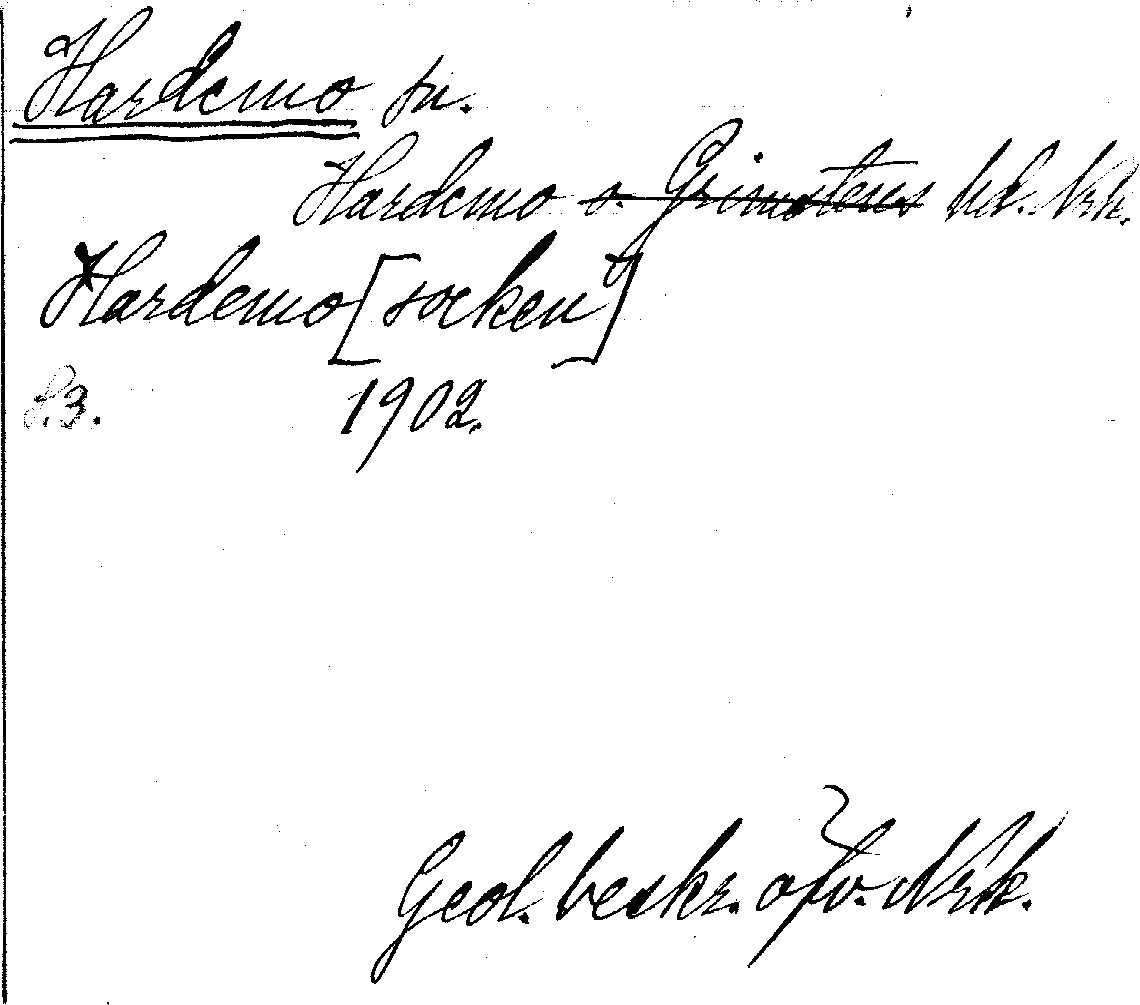 Hardemo sn.
Hardemo o. Grimstens hd. Nrk.
Hardemo [socken]
S.3. 1902.
Geol. beskr. öfv. Nrk.